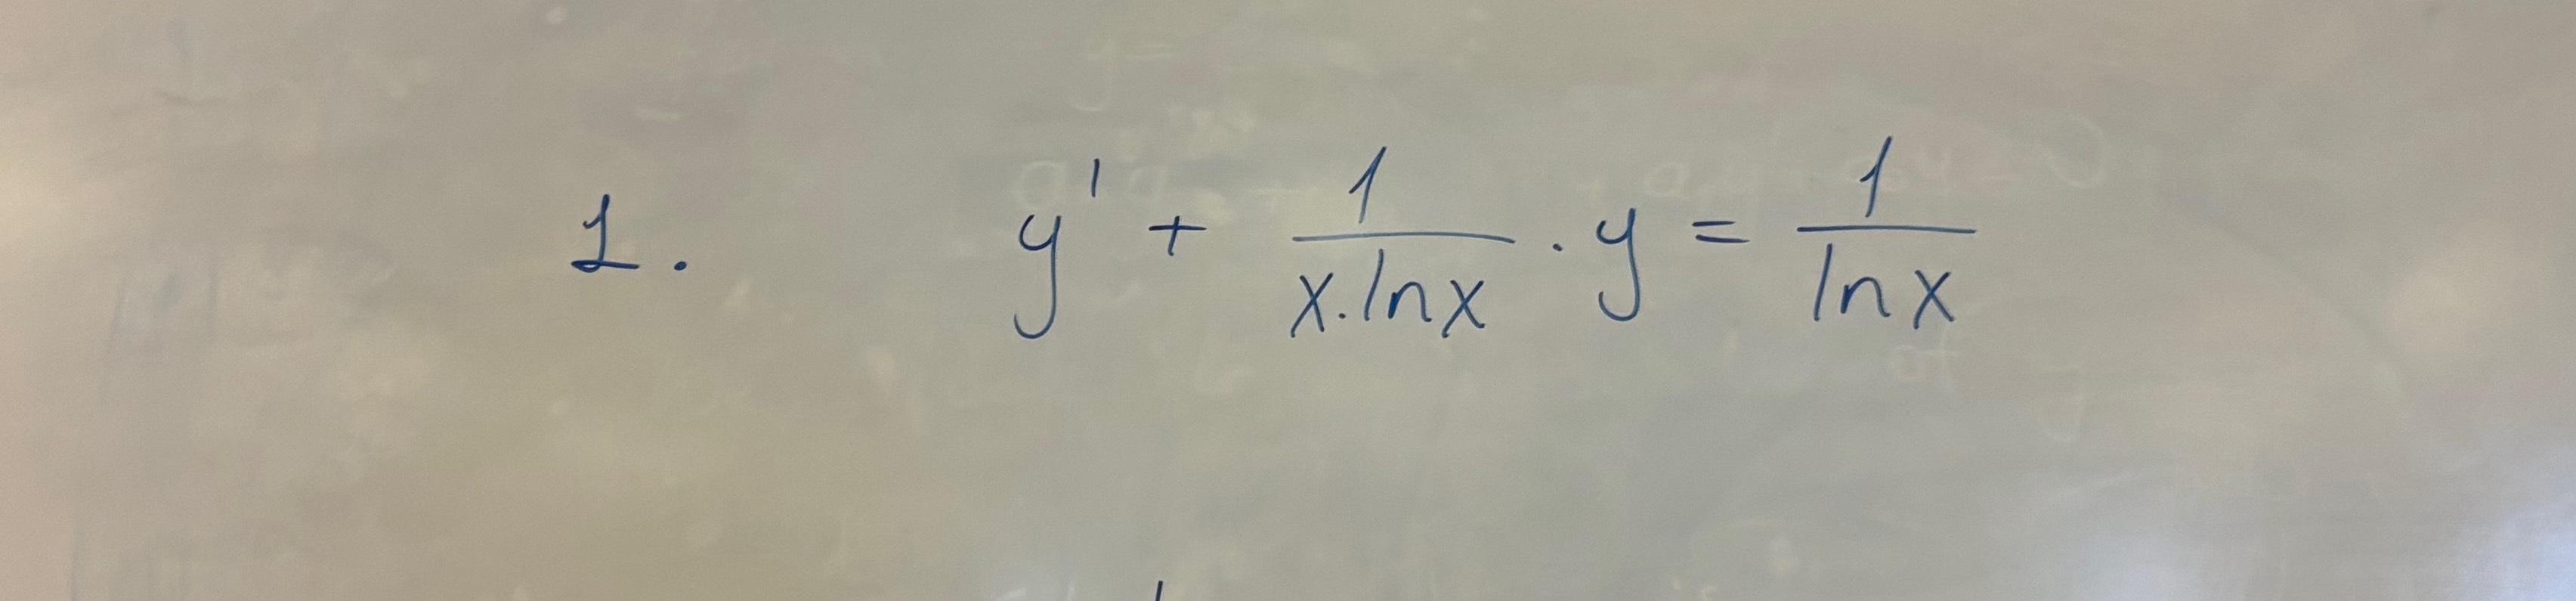 1. y' + 1/(x.lnx) . y = 1/(lnx)